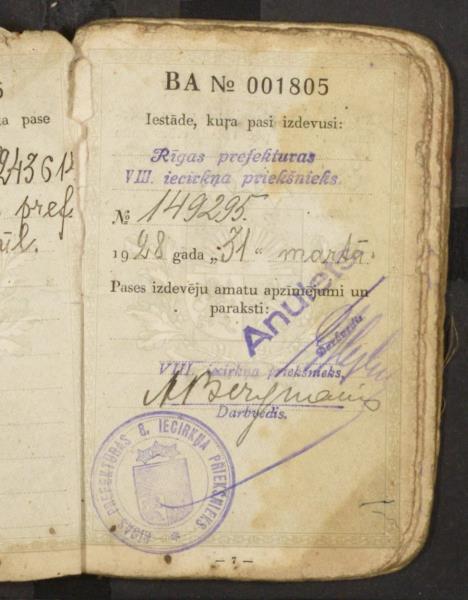 a pase
243614
pref.
BA № 001805
Iestāde, kuŗa pasi izdevusi:
Rīgas prefekturas
VIII. iecirkņa priekšnieks.
№ 149295.
1928 gada „31“ martā
Pases izdevēju amatu apzīmējumi un
paraksti:
Anulēts
Darbvedis
VIII. iecirkņa priekšnieks.
A Bergmanis
Darbvedis.
RĪGAS PREFEKTURAS 8. IECIRKŅA PRIEKŠNIEKS
— 7 —